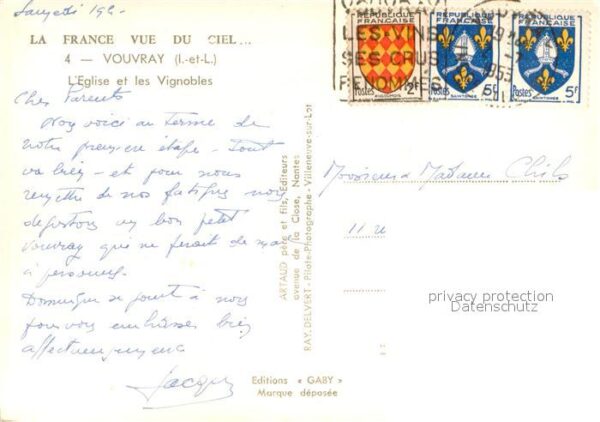 Samedi 19h.
LA FRANCE VUE DU CIEL...
4 — VOUVRAY (I.-et-L.)
L'Eglise et les Vignobles
Chers Parents
Nous voici au terme de
notre première étape - Tout
va bien - et pour nous
remettre de nos fatigues nous
dégustons un bon petit
Vouvray qui ne ferait de mal
à personne.
Dominique se joint à nous
pour vous embrasser bien
affectueusement
Jacques
ARTAUD père et fils, Editeurs
avenue de la Close, Nantes
RAY. DELVERT - Pilote-Photographe - Villeneuve-sur-Lot
Editions « GABY »
Marque déposée
REPUBLIQUE FRANÇAISE
Postes 2F
ANGOUMOIS
REPUBLIQUE FRANÇAISE
Postes 5F
SAINTONGE
REPUBLIQUE FRANÇAISE
Postes 5F
SAINTONGE
VOUVRAY
LES VINS
SES CRUS
RENOMMES
1955
Monsieur & Madame
11 R
privacy protection
Datenschutz